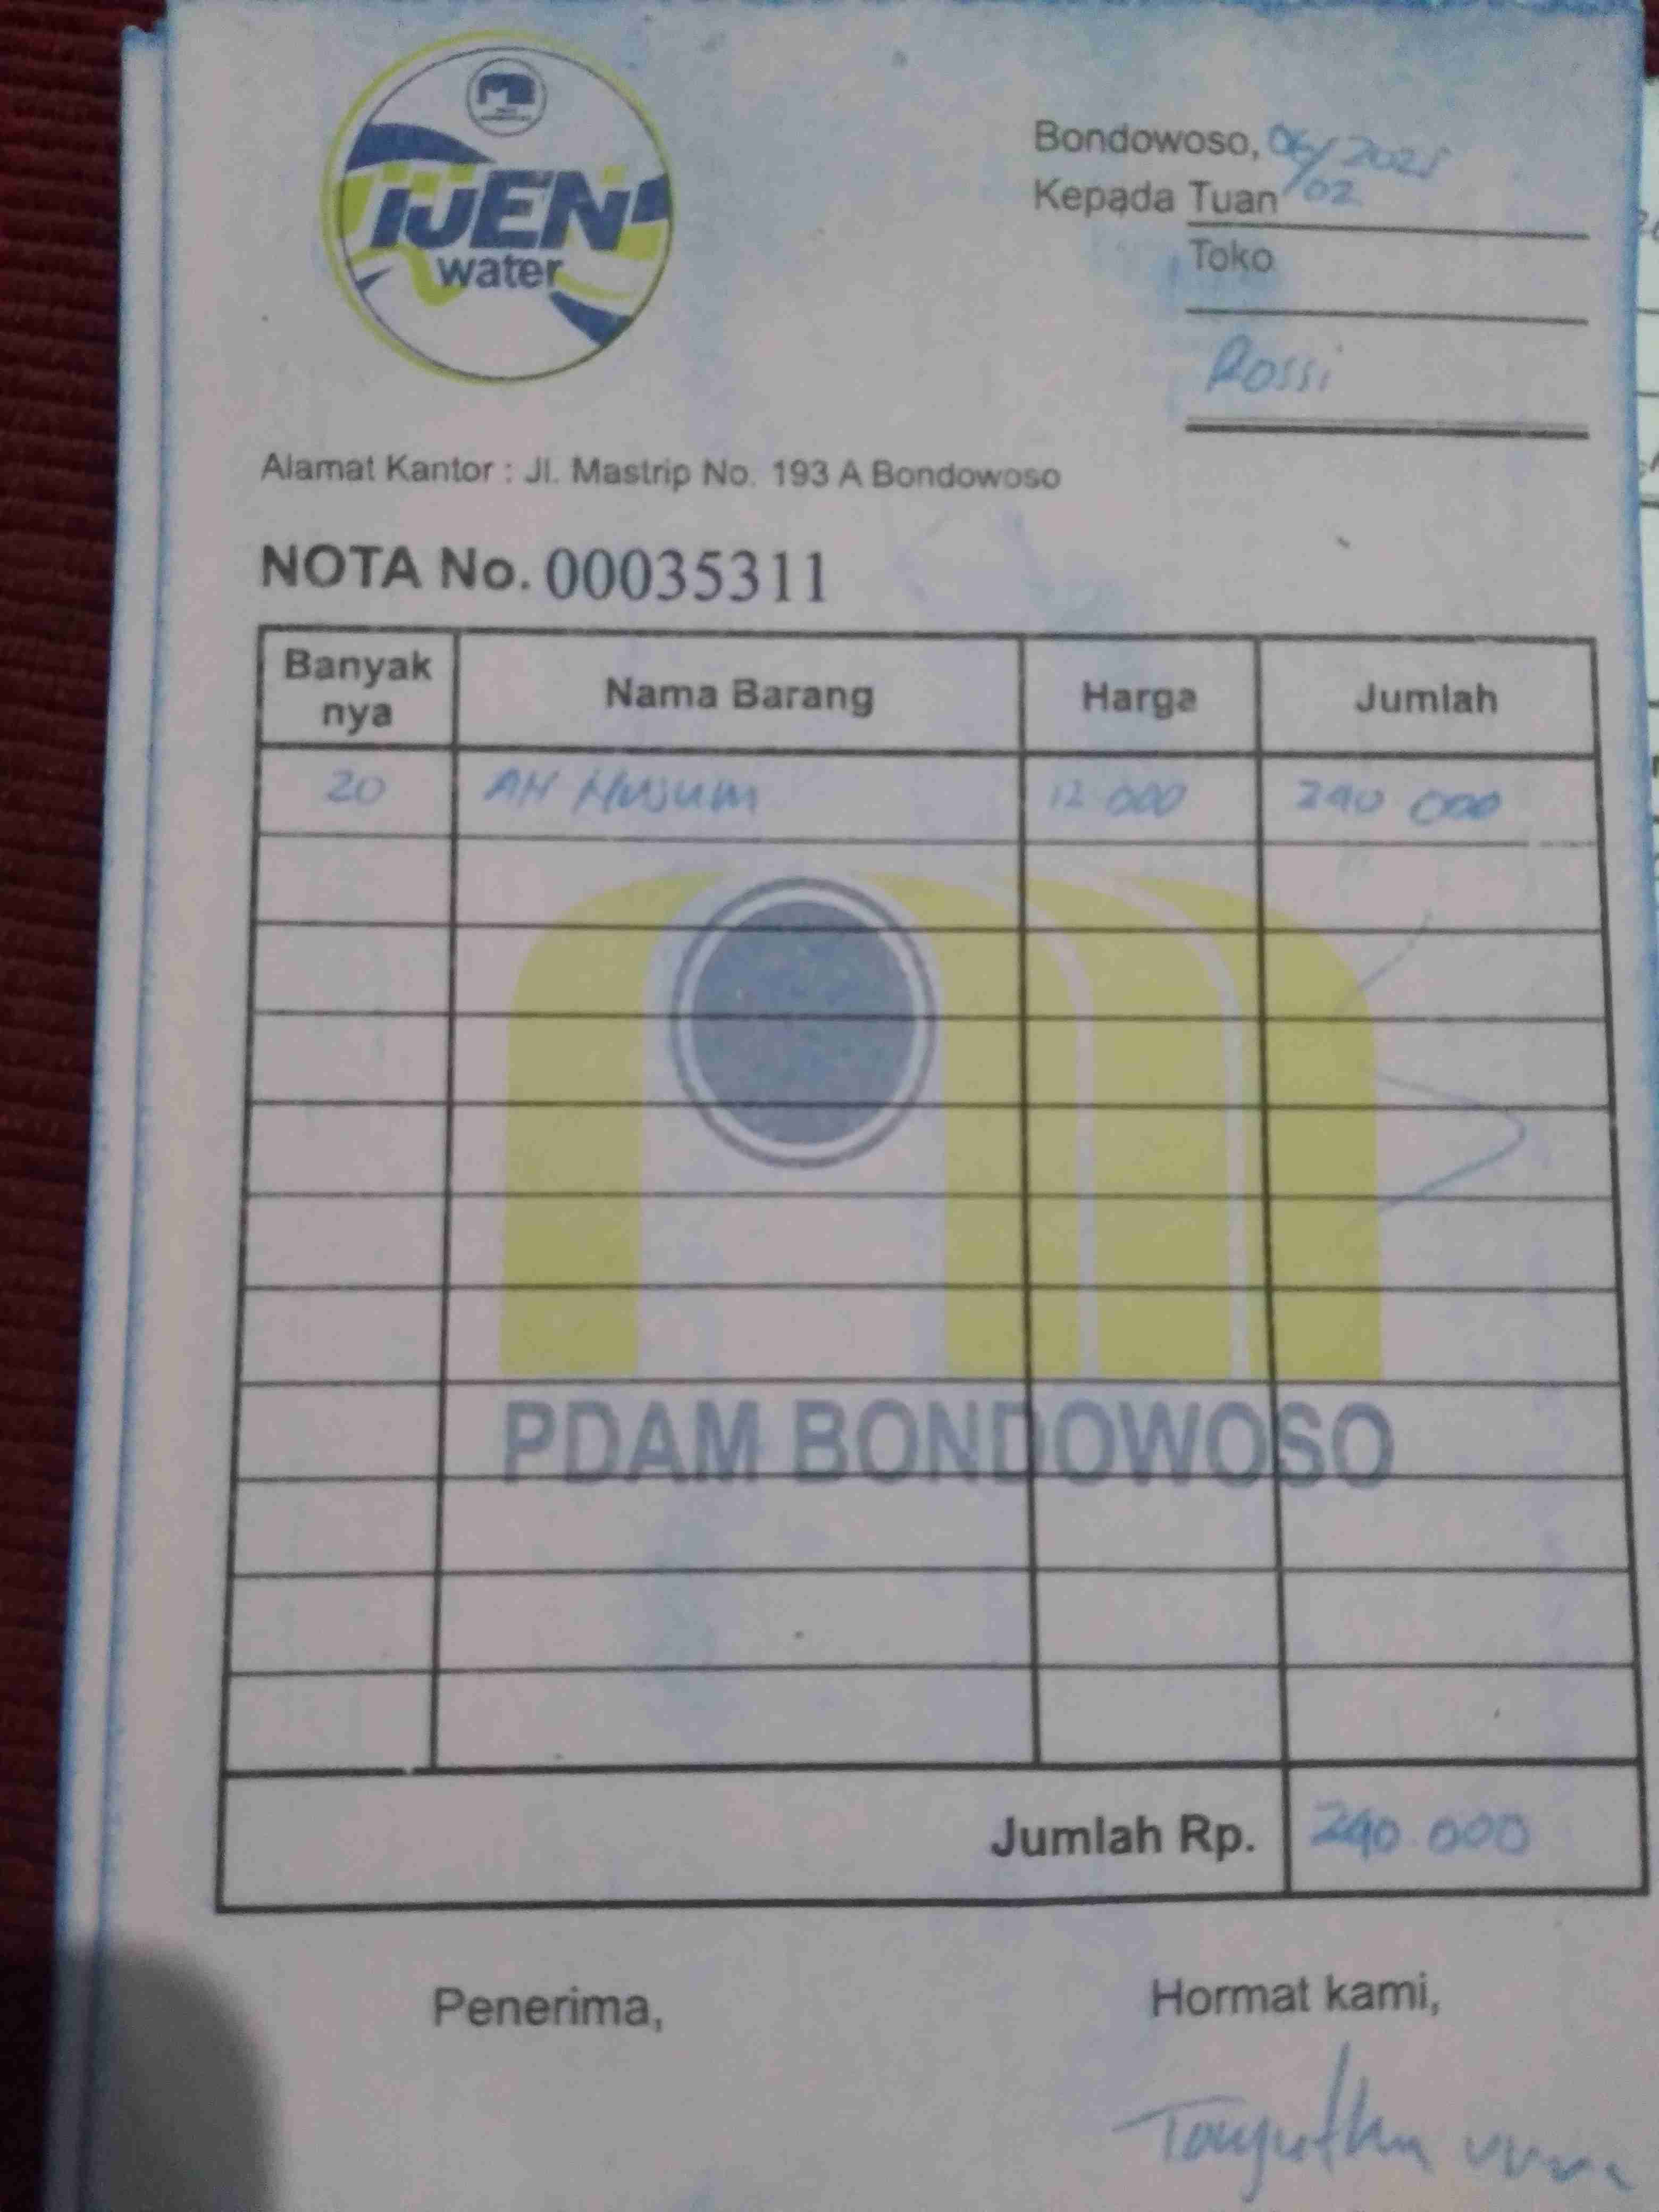 IJEN
water
Bondowoso, 06/02 2025
Kepada Tuan
Toko
Rossi
Alamat Kantor : Jl. Mastrip No. 193 A Bondowoso
NOTA No. 00035311
Banyak nya Nama Barang Harga Jumlah
20 12 000 240 000
PDAM BONDOWOSO
Jumlah Rp. 240 000
Penerima, Hormat kami,